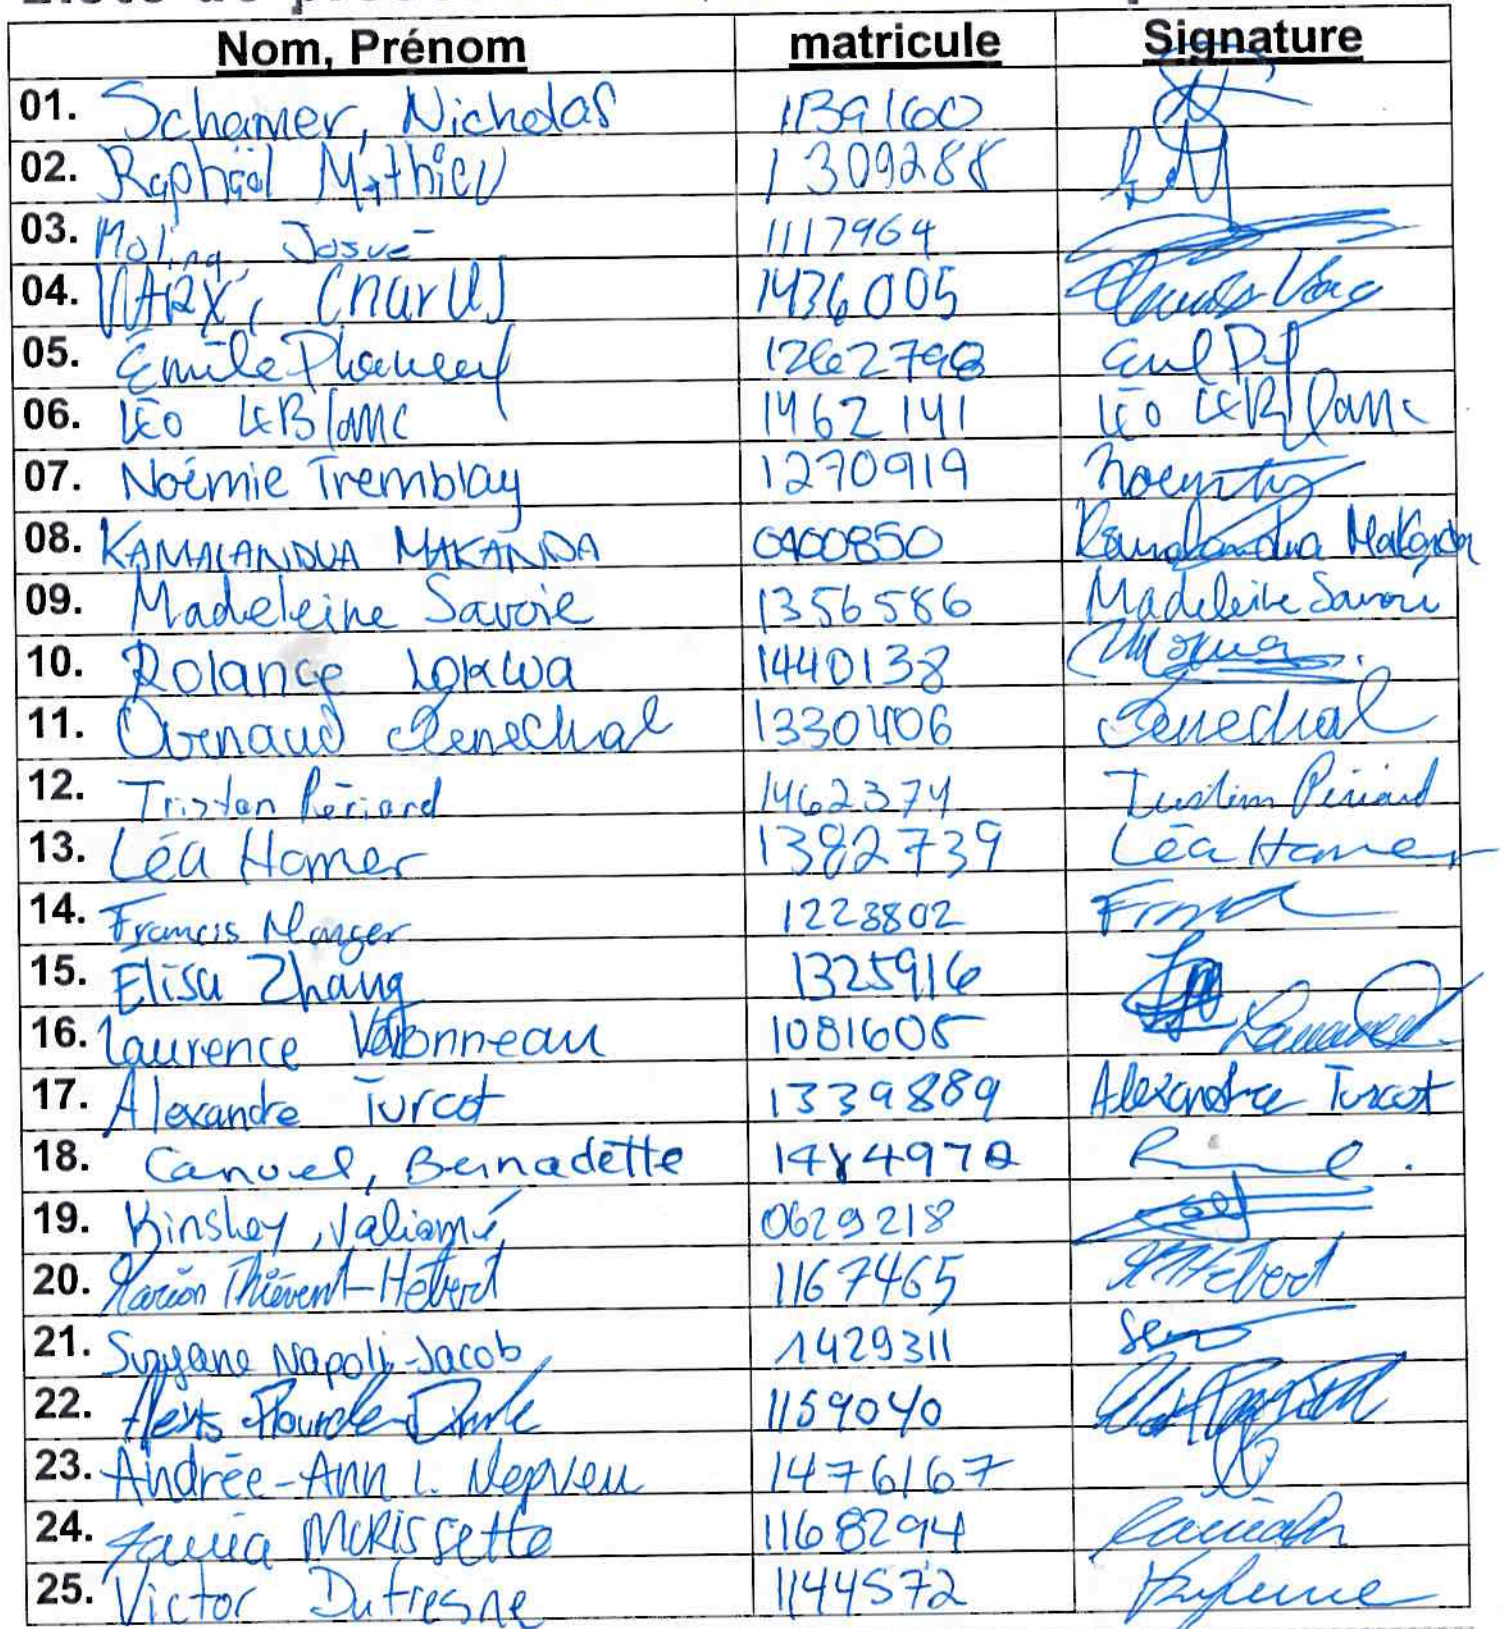 Nom, Prénom matricule Signature
01. Schamer, Nicholas 1139160
02. Raphaël Mathieu 1309288
03. Molina, Josué 1117964
04. MARX, Charles 1436005
05. Émile Phaneuf 1262798
06. Léo LEBlanc 1462141 Léo LEBlanc
07. Noémie Tremblay 1270919
08. KAMALANDUA MAKANDA 0400850 Kamalandua Makanda
09. Madeleine Savoie 1356586 Madeleine Savoie
10. Rolance Lokwa 1440138
11. Arnaud Senechal 1330406 Senechal
12. Tristan Périard 1462374 Tristan Périard
13. Léa Hamer 1382739 Léa Hamer
14. Francis Monger 1223802
15. Élisa Zhang 1325916
16. Laurence Valbonneau 1081605
17. Alexandre Turcot 1339889 Alexandre Turcot
18. Canuel, Bernadette 1484970
19. Kinsley, Valiamé 0629218
20. Marion Thiévent-Hébert 1167465 MTHébert
21. Suzyane Napoli-Jacob 1429311
22. Alexis Plourde 1159040
23. Andrée-Ann L. Nepveu 1476167
24. MORISSette 1168294
25. Victor Dufresne 1144572